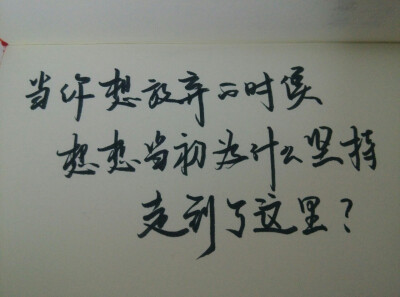 当你想放弃的时候
想想当初为什么坚持
走到了这里?